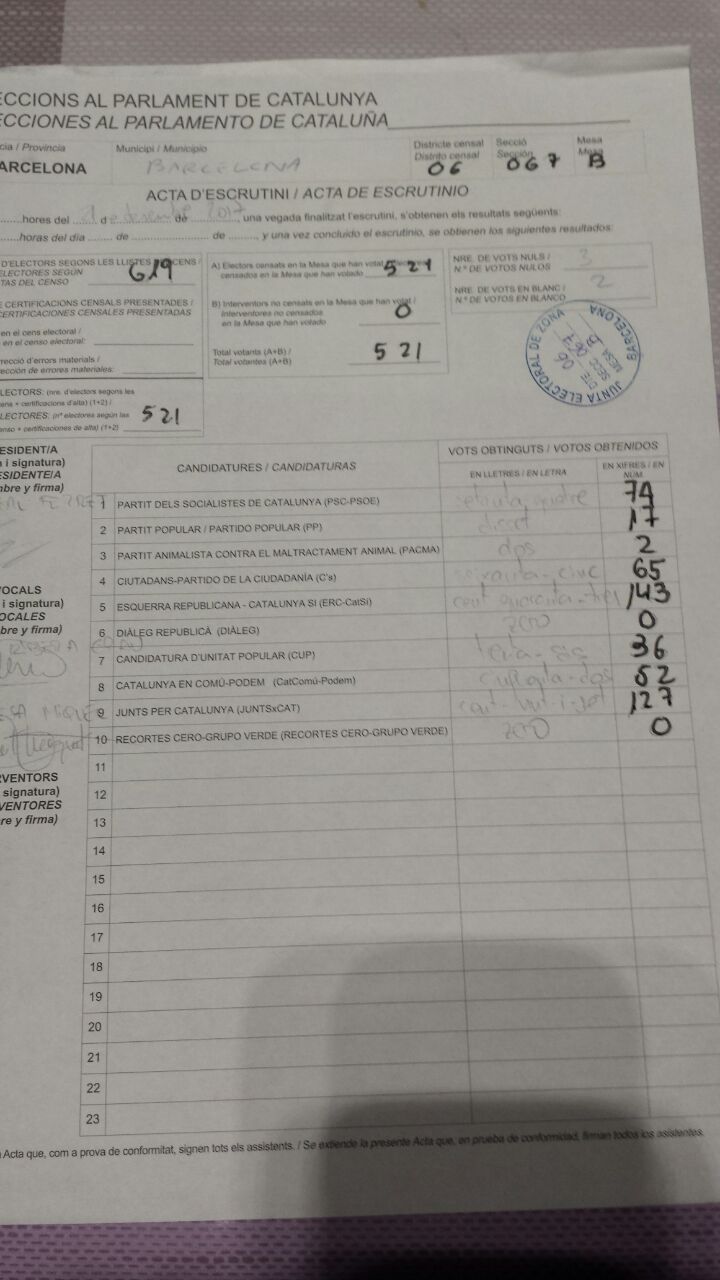 ECCIONS AL PARLAMENT DE CATALUNYA
ECCIONES AL PARLAMENTO DE CATALUÑA
cia / Provincia
ARCELONA
Municipi / Municipio
BARCELONA
Districte censal
Distrito censal
06
Secció
Sección
067
Mesa
Mesa
B
ACTA D'ESCRUTINI / ACTA DE ESCRUTINIO
hores del de 2017, una vegada finalitzat l'escrutini, s'obtenen els resultats següents:
horas del día de de, y una vez concluido el escrutinio, se obtienen los siguientes resultados:
D'ELECTORS SEGONS LES LLISTES CENS /
ELECTORES SEGÚN
TAS DEL CENSO
619
E CERTIFICACIONS CENSALS PRESENTADES /
CERTIFICACIONES CENSALES PRESENTADAS
en el cens electoral /
en el censo electoral:
rrecció d'errors materials /
ección de errores materiales:
LECTORS: (nre. d'electors segons les
cens + certificacions d'alta) (1+2) /
LECTORES: (nº electores según las
enso + certificaciones de alta) (1+2)
521
A) Electors censats en la Mesa que han votat /
censados en la Mesa que han votado
521
B) Interventors no censats en la Mesa que han votat /
Interventores no censados
en la Mesa que han votado
0
Total votants (A+B) /
Total votantes (A+B)
521
NRE. DE VOTS NULS /
N.º DE VOTOS NULOS
3
NRE. DE VOTS EN BLANC /
N.º DE VOTOS EN BLANCO
2
JUNTA ELECTORAL DE ZONA
BARCELONA
DTE 06
SECC 067
MESA B
ESIDENT/A
i signatura)
ESIDENTE/A
mbre y firma)
OCALS
i signatura)
OCALES
bre y firma)
RVENTORS
signatura)
VENTORES
re y firma)
CANDIDATURES / CANDIDATURAS
VOTS OBTINGUTS / VOTOS OBTENIDOS
EN LLETRES / EN LETRA
EN XIFRES / EN NÚM.
1 PARTIT DELS SOCIALISTES DE CATALUNYA (PSC-PSOE) 74
2 PARTIT POPULAR / PARTIDO POPULAR (PP) disset 17
3 PARTIT ANIMALISTA CONTRA EL MALTRACTAMENT ANIMAL (PACMA) dos 2
4 CIUTADANS-PARTIDO DE LA CIUDADANÍA (C's) 65
5 ESQUERRA REPUBLICANA - CATALUNYA SÍ (ERC-CatSí) cent quaranta-tres 143
6 DIÀLEG REPUBLICÀ (DIÀLEG) zero 0
7 CANDIDATURA D'UNITAT POPULAR (CUP) trenta-sis 36
8 CATALUNYA EN COMÚ-PODEM (CatComú-Podem) 52
9 JUNTS PER CATALUNYA (JUNTSxCAT) cent-vint-i-set 127
10 RECORTES CERO-GRUPO VERDE (RECORTES CERO-GRUPO VERDE) zero 0
11
12
13
14
15
16
17
18
19
20
21
22
23
Acta que, com a prova de conformitat, signen tots els assistents. / Se extiende la presente Acta que, en prueba de conformidad, firman todos los asistentes.